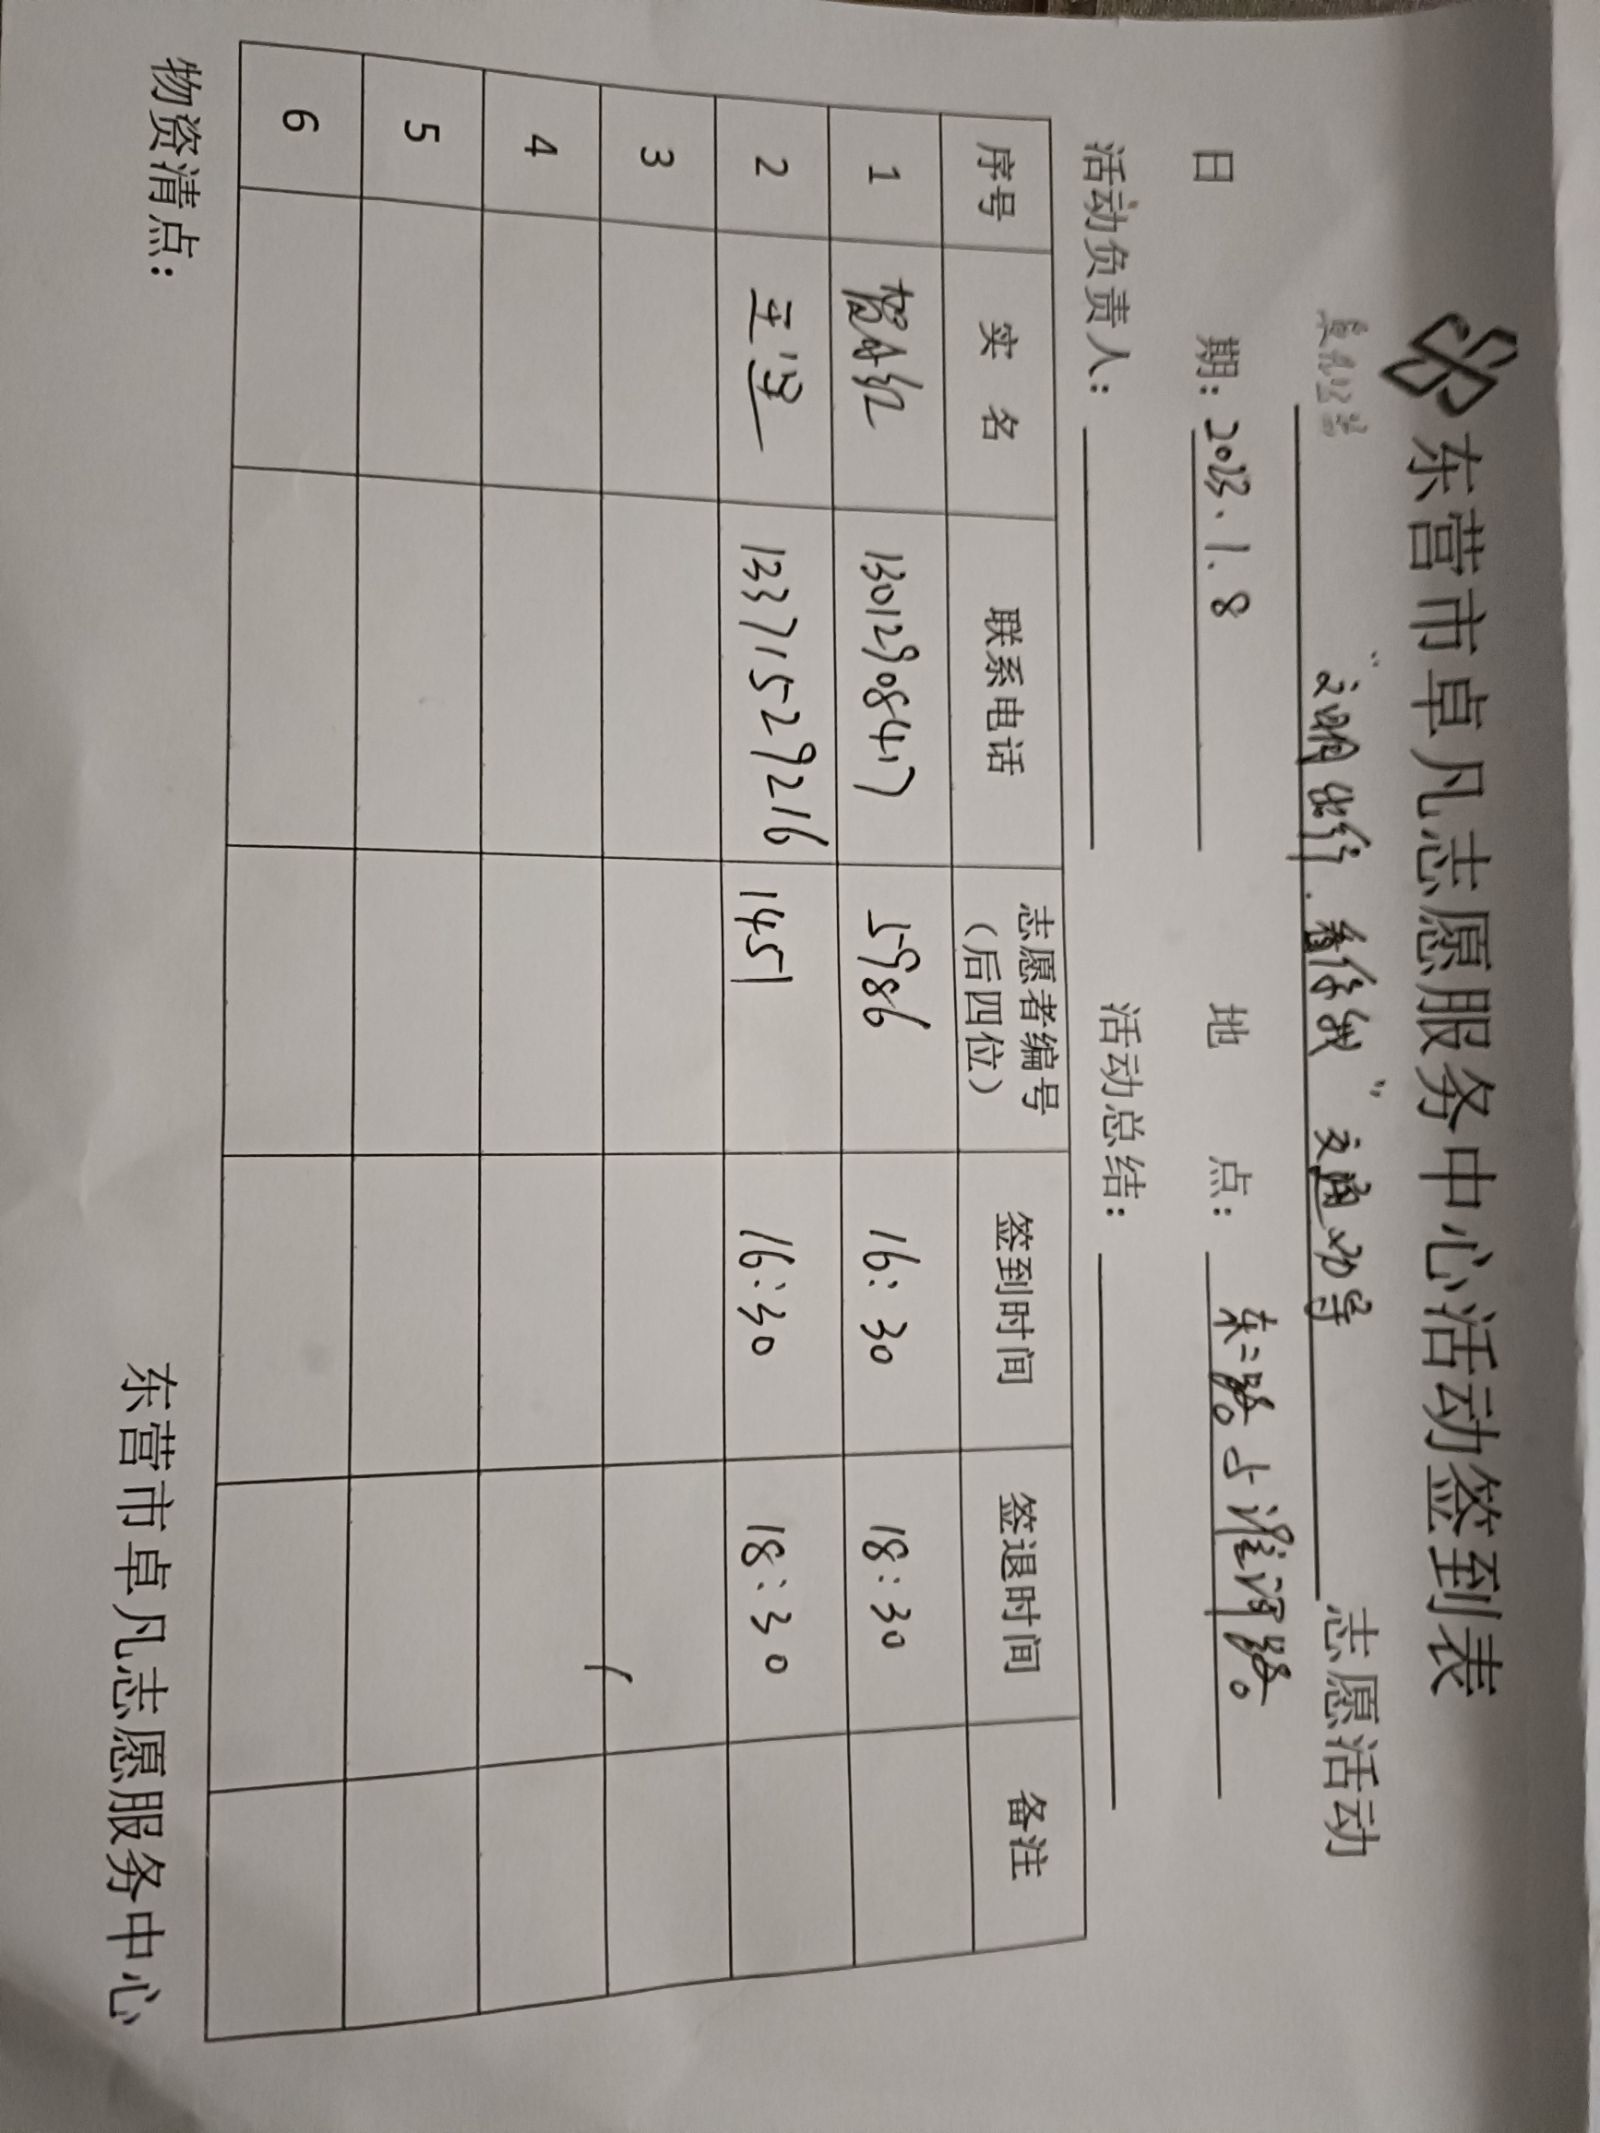 东营市卓凡志愿服务中心活动签到表
卓凡公益 "文明出行.看你我"交通劝导 志愿活动
日 期: 2023.1.8 地 点: 东二路与淮河路。
活动负责人: 活动总结:
序号 实 名 联系电话 志愿者编号（后四位） 签到时间 签退时间 备注
1 13012908417 5986 16:30 18:30
2 13371529216 1451 16:30 18:30
3
4
5
6
物资清点:
东营市卓凡志愿服务中心